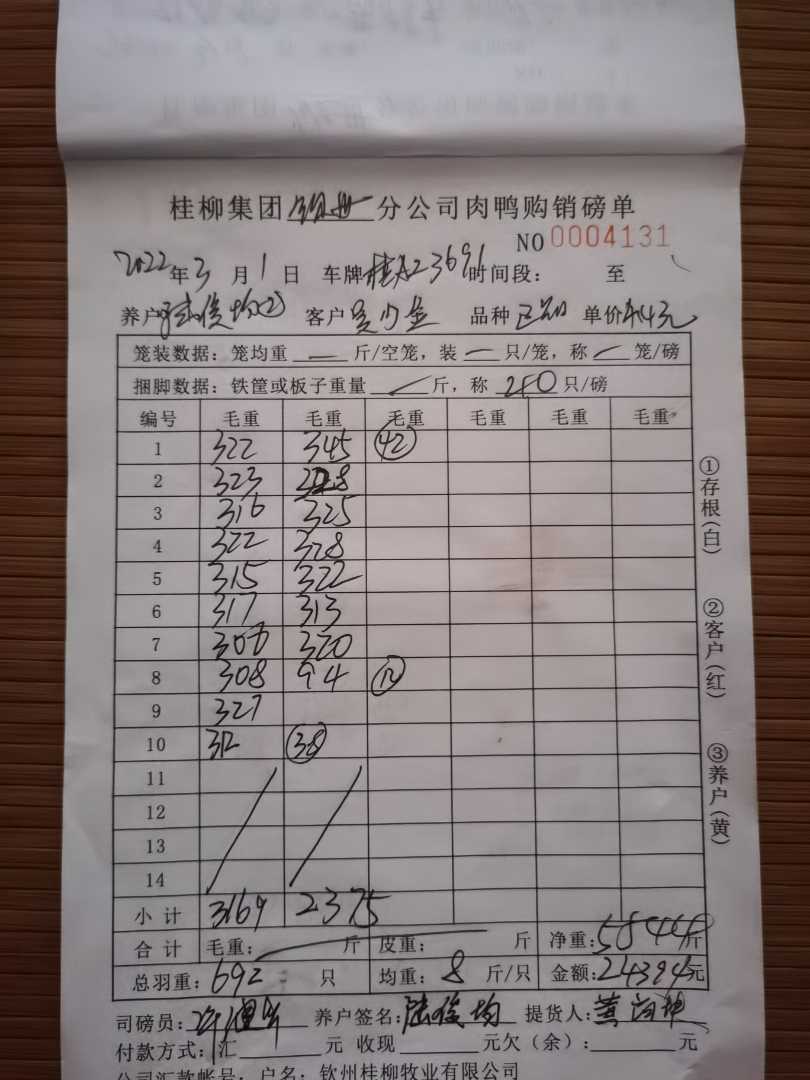 桂柳集团 分公司肉鸭购销磅单
NO 0004131
2022年3月1日 车牌桂A23691时间段： 至
养户 陆俊均② 客户 吴少金 品种 单价4.43元
笼装数据：笼均重 斤/空笼，装 只/笼，称 笼/磅
捆脚数据：铁筐或板子重量 斤，称 240 只/磅
编号 毛重 毛重 毛重 毛重 毛重 毛重
1 322 345 42
2 323 328
3 316 325
4 322 328
5 315 322
6 317 313
7 307 320
8 308 94 12
9 327
10 312 38
11
12
13
14
小计 3169 2375
合计 毛重： 斤 皮重： 斤 净重：5544斤
总羽重：692 只 均重：8 斤/只 金额：24394元
司磅员： 养户签名：陆俊均 提货人：黄
付款方式：汇 元 收现 元欠（余）： 元
公司汇款帐号：户名：钦州桂柳牧业有限公司
①存根(白)
②客户(红)
③养户(黄)